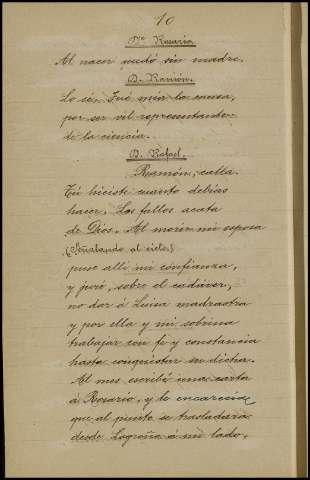 10
Dª Rosario
Al nacer quedó sin madre.
D. Ramón.
Lo sé. Fué mía la causa,
por ser vil representante
de la ciencia.
D. Rafael.
Ramón, calla.
Tú hiciste cuanto debías
hacer. Los fallos acata
de Dios. Al morir mi esposa
(Señalando al cielo)
puse allí mi confianza,
y juré, sobre el cadáver,
no dar á Luisa madrastra
y por ella y mi sobrina
trabajar con fe y constancia
hasta conquistar su dicha.
Al mes escribí una carta
á Rosario, y le encarecía
que al punto se trasladara
desde Logroño á mi lado.